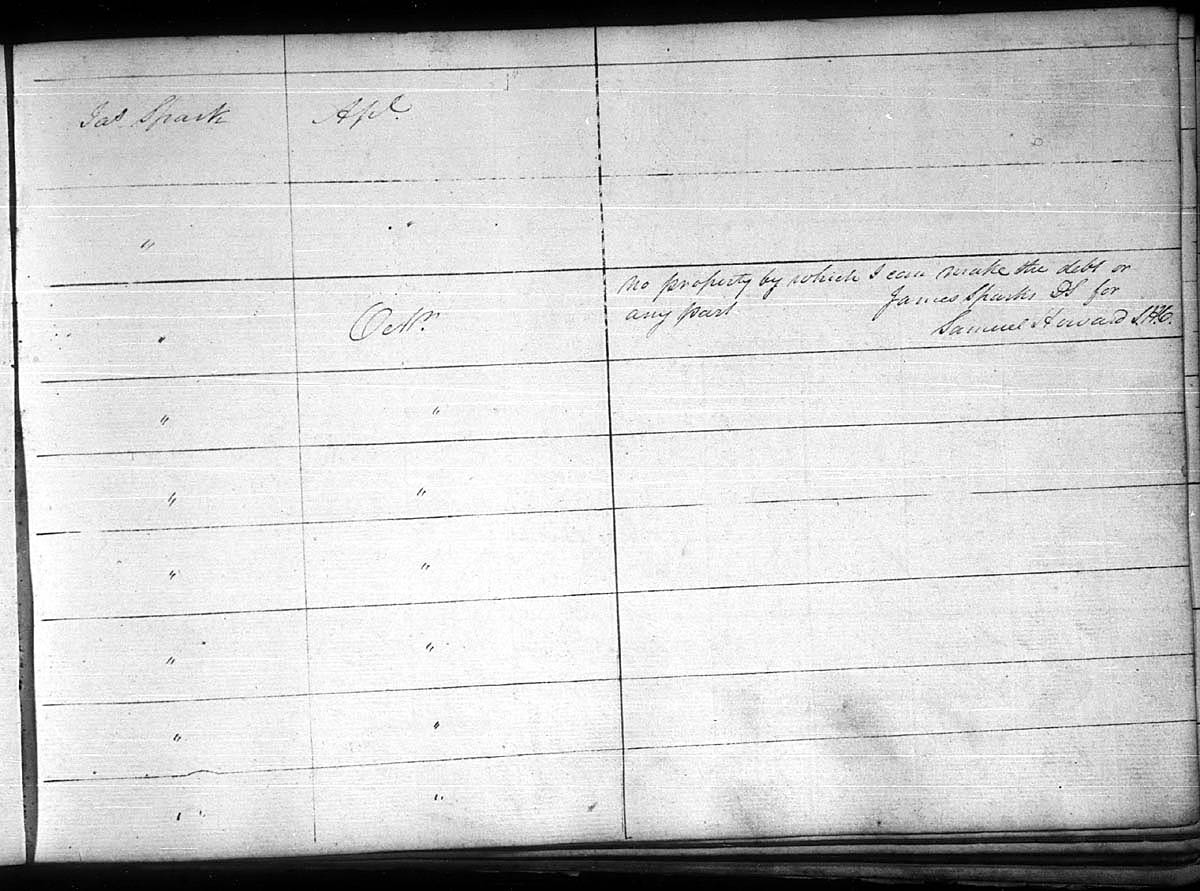 Jas Spark Apl.
" "
" Octr. no property by which I can make the debt or
any part James Sparks DS for
Samuel Howard S.H.C.
" "
" "
" "
" "
" "
" "